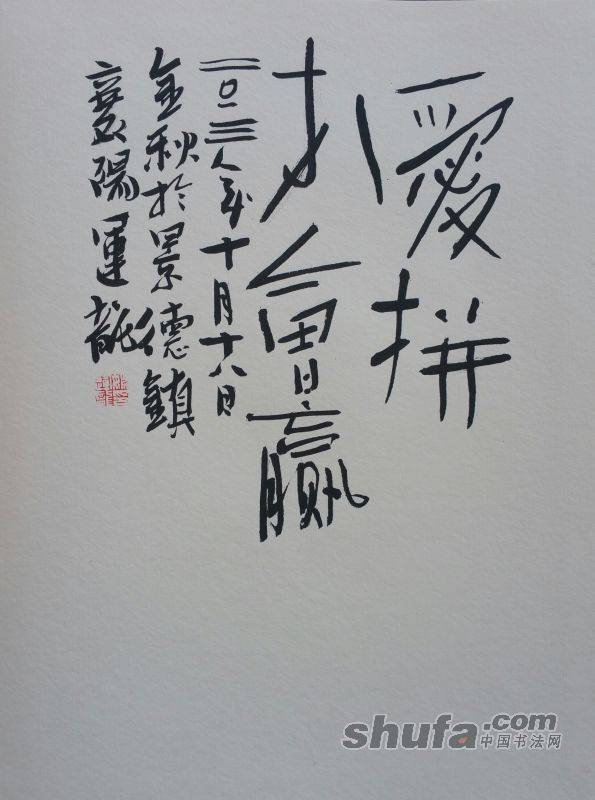 愛拼
才會贏
二〇一三年十月十八日
金秋於景德鎮
襄陽運龍
shufa.com
中国书法网